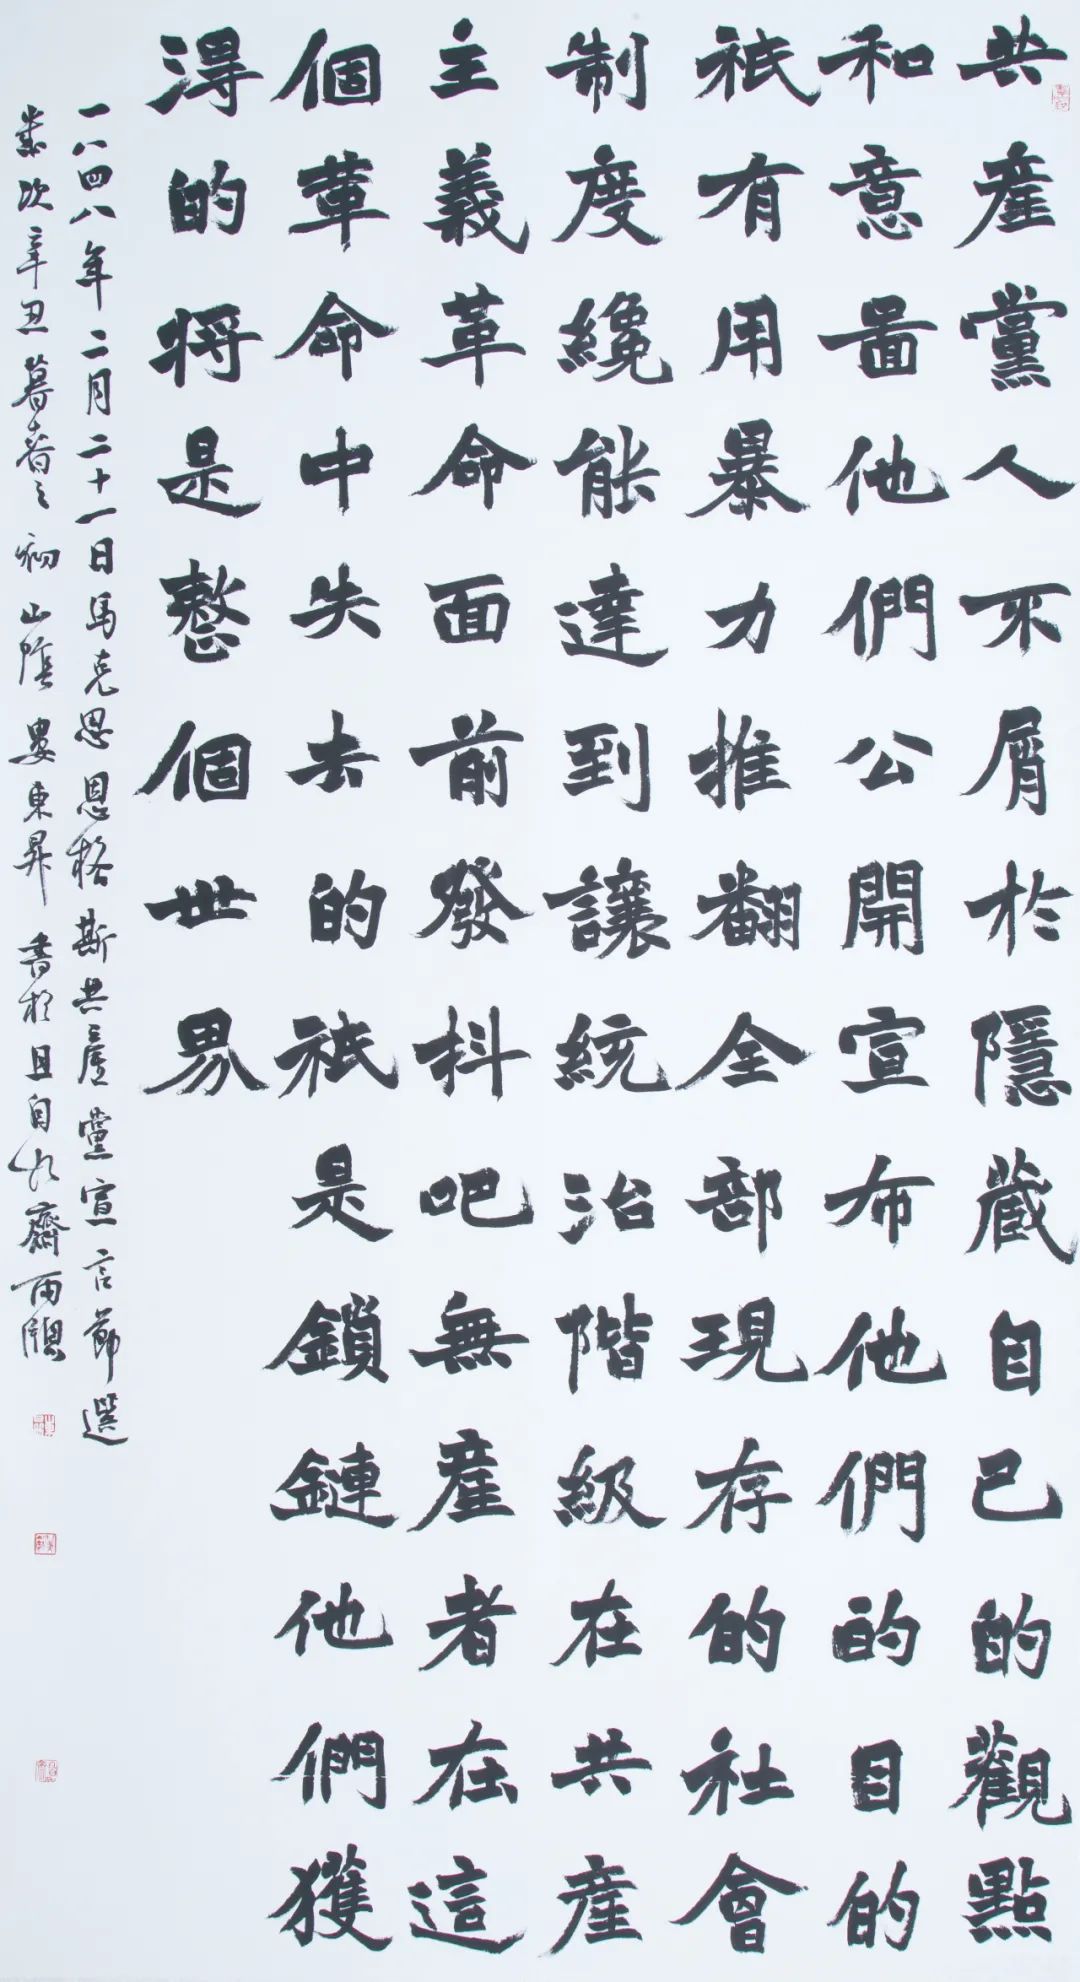 共產黨人不屑於隱藏自己的觀點
和意圖他們公開宣布他們的目的
祇有用暴力推翻全部現存的社會
制度纔能達到讓統治階級在共產
主義革命面前發抖吧無產者在這
個革命中失去的祇是鎖鏈他們獲
得的將是整個世界
一八四八年二月二十一日馬克思恩格斯共產黨宣言節選
歲次辛丑暮春之初山陰婁東昇書於且自齋雨牕